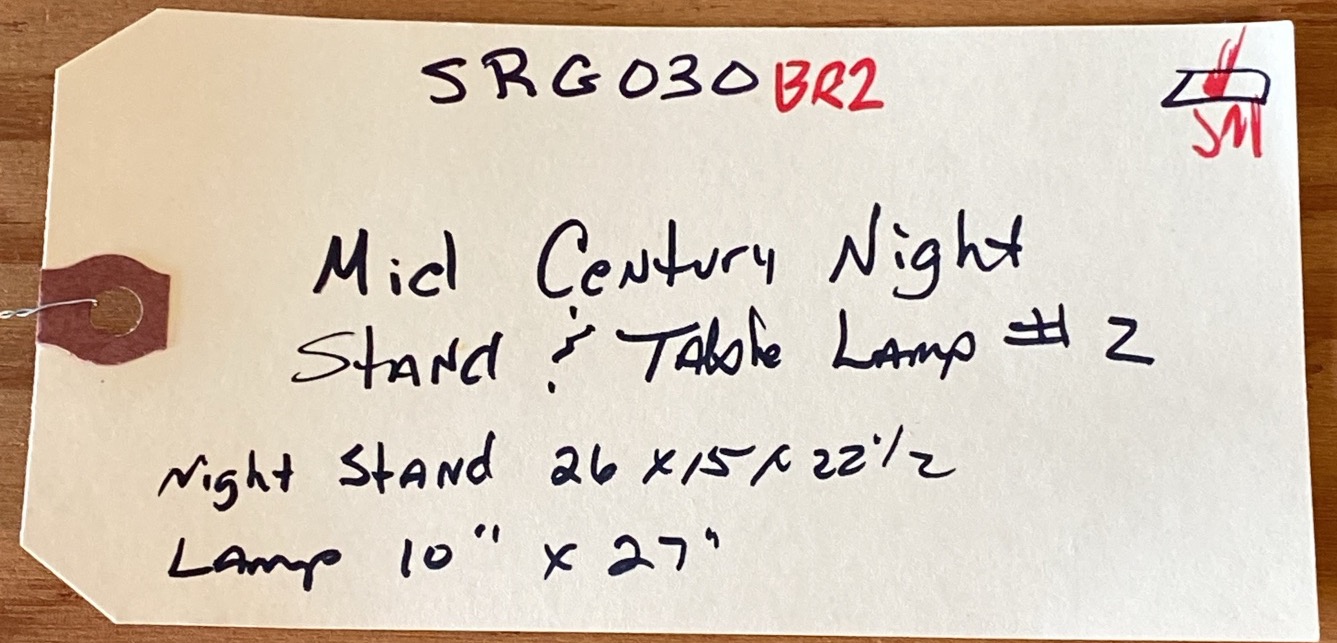 SRG030 BR2
SM
Mid Century Night
Stand & Table Lamp # 2
Night Stand 26 x 15 x 22 1/2
Lamp 10" x 27"